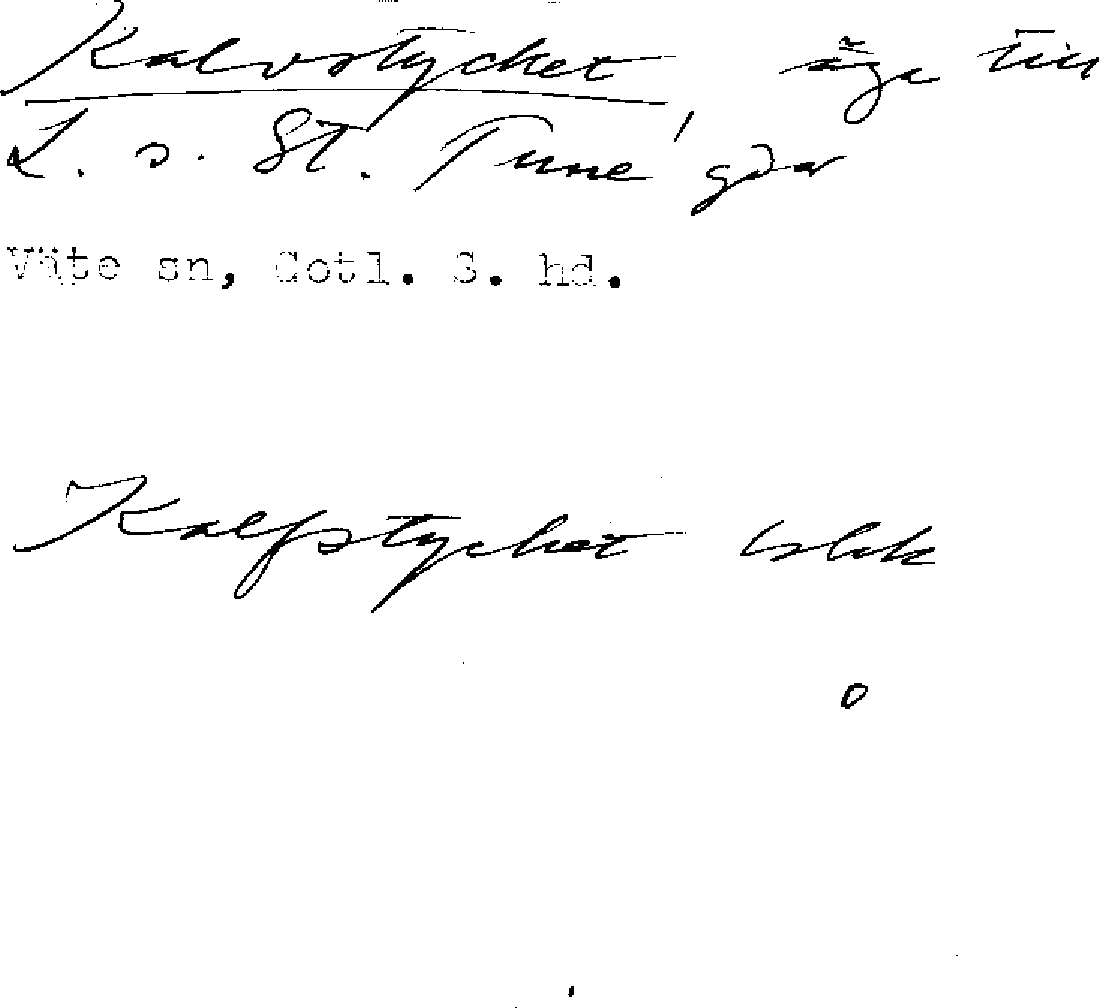 Kalvstycket, äga till
L. o. St. Tune, gdar
Väte sn, Gotl. S. hd.
Kalfstycket lskk